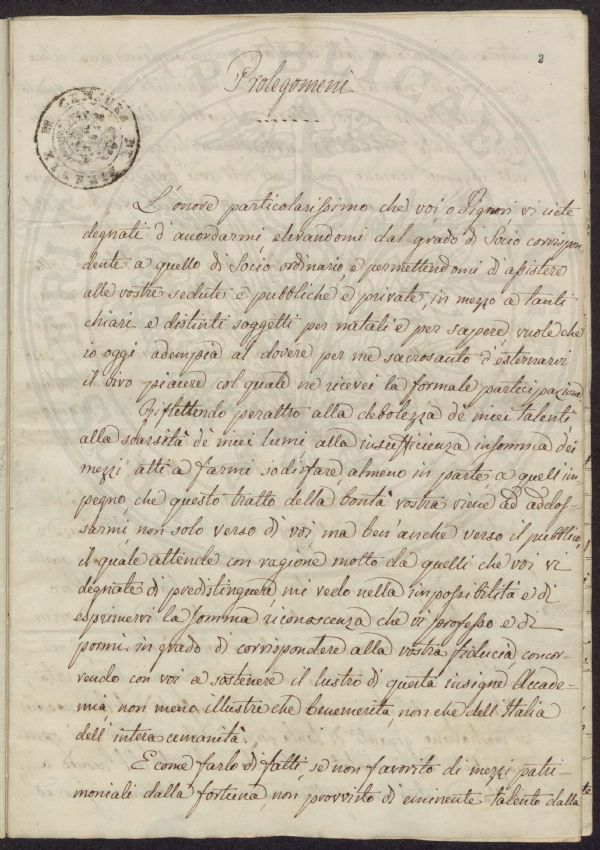 2
Prolegomeni
CENSURA DI FIRENZE
L'onore particolarissimo che voi, o Signori vi siete
degnati d'accordarmi, elevandomi dal grado di Socio corrispon
dente a quello di Socio ordinario, e permettendomi d'assistere
alle vostre sedute e pubbliche e private, in mezzo a tanti
chiari e distinti soggetti per natali e per sapere, vuole che
io oggi adempia al dovere per me sacrosanto d'esternarvi
il vivo piacere col quale ne ricevei la formale partecipazione.
Riflettendo peraltro alla debolezza de' miei talenti,
alla scarsità de' miei lumi, alla insufficienza insomma dei
mezzi atti a farmi sodisfare, almeno in parte a quell'im
pegno, che questo tratto della bontà vostra viene ad addos-
sarmi non solo verso di voi ma ben'anche verso il pubblico,
il quale attende con ragione molto da quelli che voi vi
degnate di predistinguere, mi vedo nella impossibilità e di
esprimervi la somma riconoscenza che vi professo e di
pormi in grado di corrispondere alla vostra fiducia, concor-
rendo con voi a sostenere il lustro di questa insigne Accade-
mia, non meno illustre che benemerita, non che dell'Italia
dell'intera umanità.
E come farlo di fatti, se non favorito di mezzi patri-
moniali dalla fortuna non provvisto di eminente talento dalla